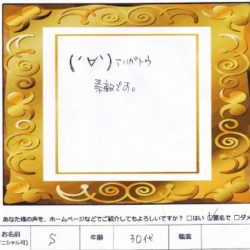 (´∀`)アリガトウ
素敵です。
あなた様の声を、ホームページなどでご紹介してもよろしいですか？ □はい ☑匿名で □ダメ
お名前
イニシャル可)
S
年齢
30代
職業